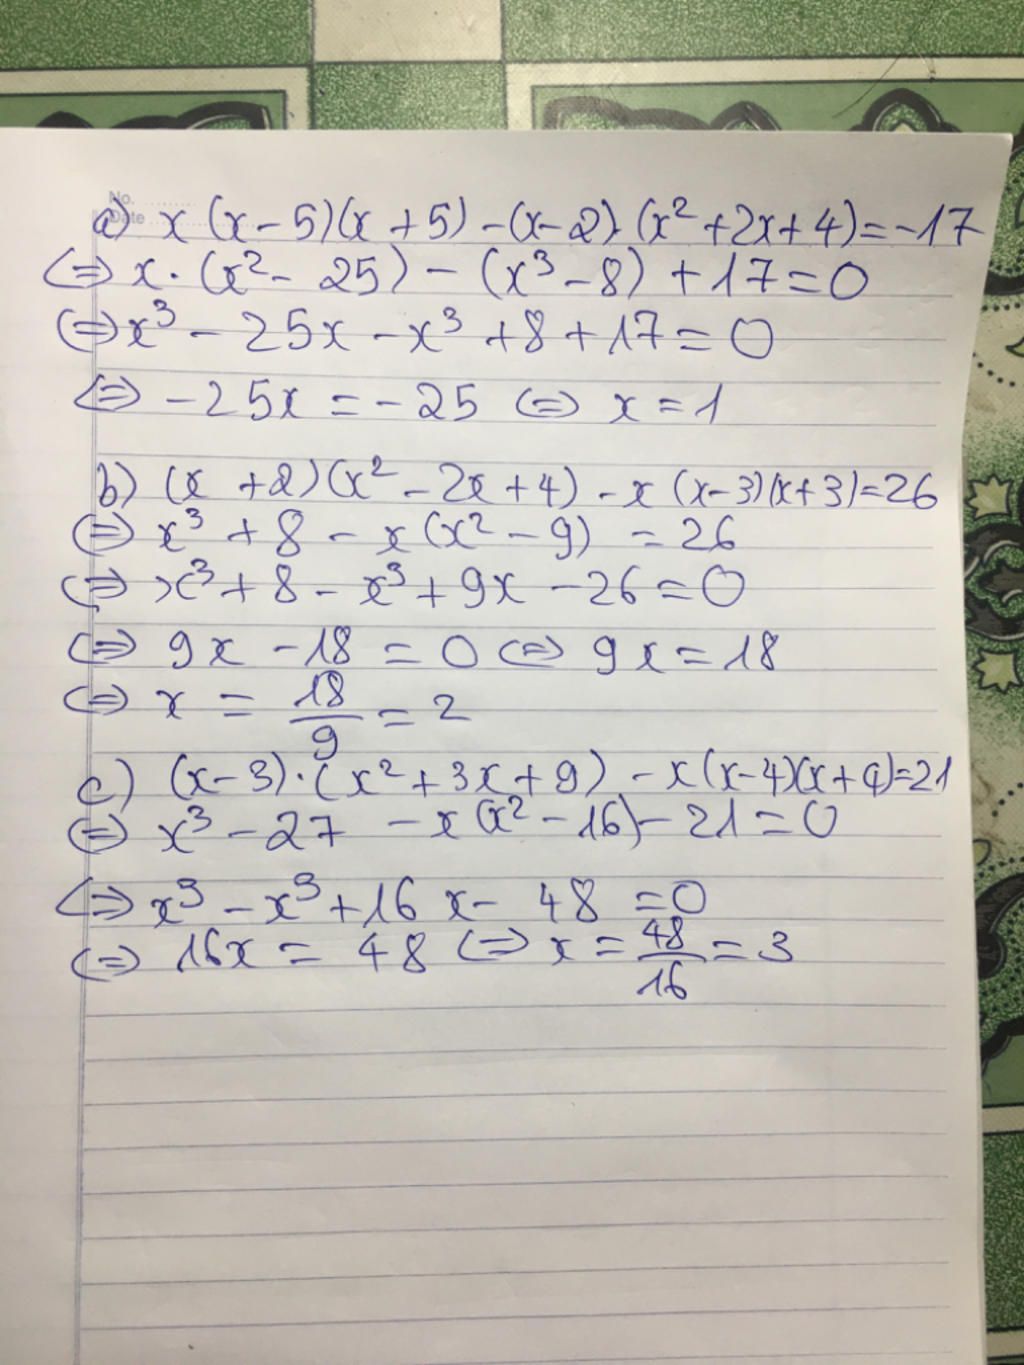 No. ..........
Date ..........
a) x (x - 5)(x + 5) - (x - 2).(x² + 2x + 4) = -17
<=> x . (x² - 25) - (x³ - 8) + 17 = 0
<=> x³ - 25x - x³ + 8 + 17 = 0
<=> -25x = -25 <=> x = 1
b) (x + 2)(x² - 2x + 4) - x (x - 3)(x + 3) = 26
<=> x³ + 8 - x (x² - 9) = 26
<=> x³ + 8 - x³ + 9x - 26 = 0
<=> 9x - 18 = 0 <=> 9x = 18
<=> x = 18/9 = 2
c) (x - 3).(x² + 3x + 9) - x(x - 4)(x + 4) = 21
<=> x³ - 27 - x(x² - 16) - 21 = 0
<=> x³ - x³ + 16x - 48 = 0
<=> 16x = 48 <=> x = 48/16 = 3